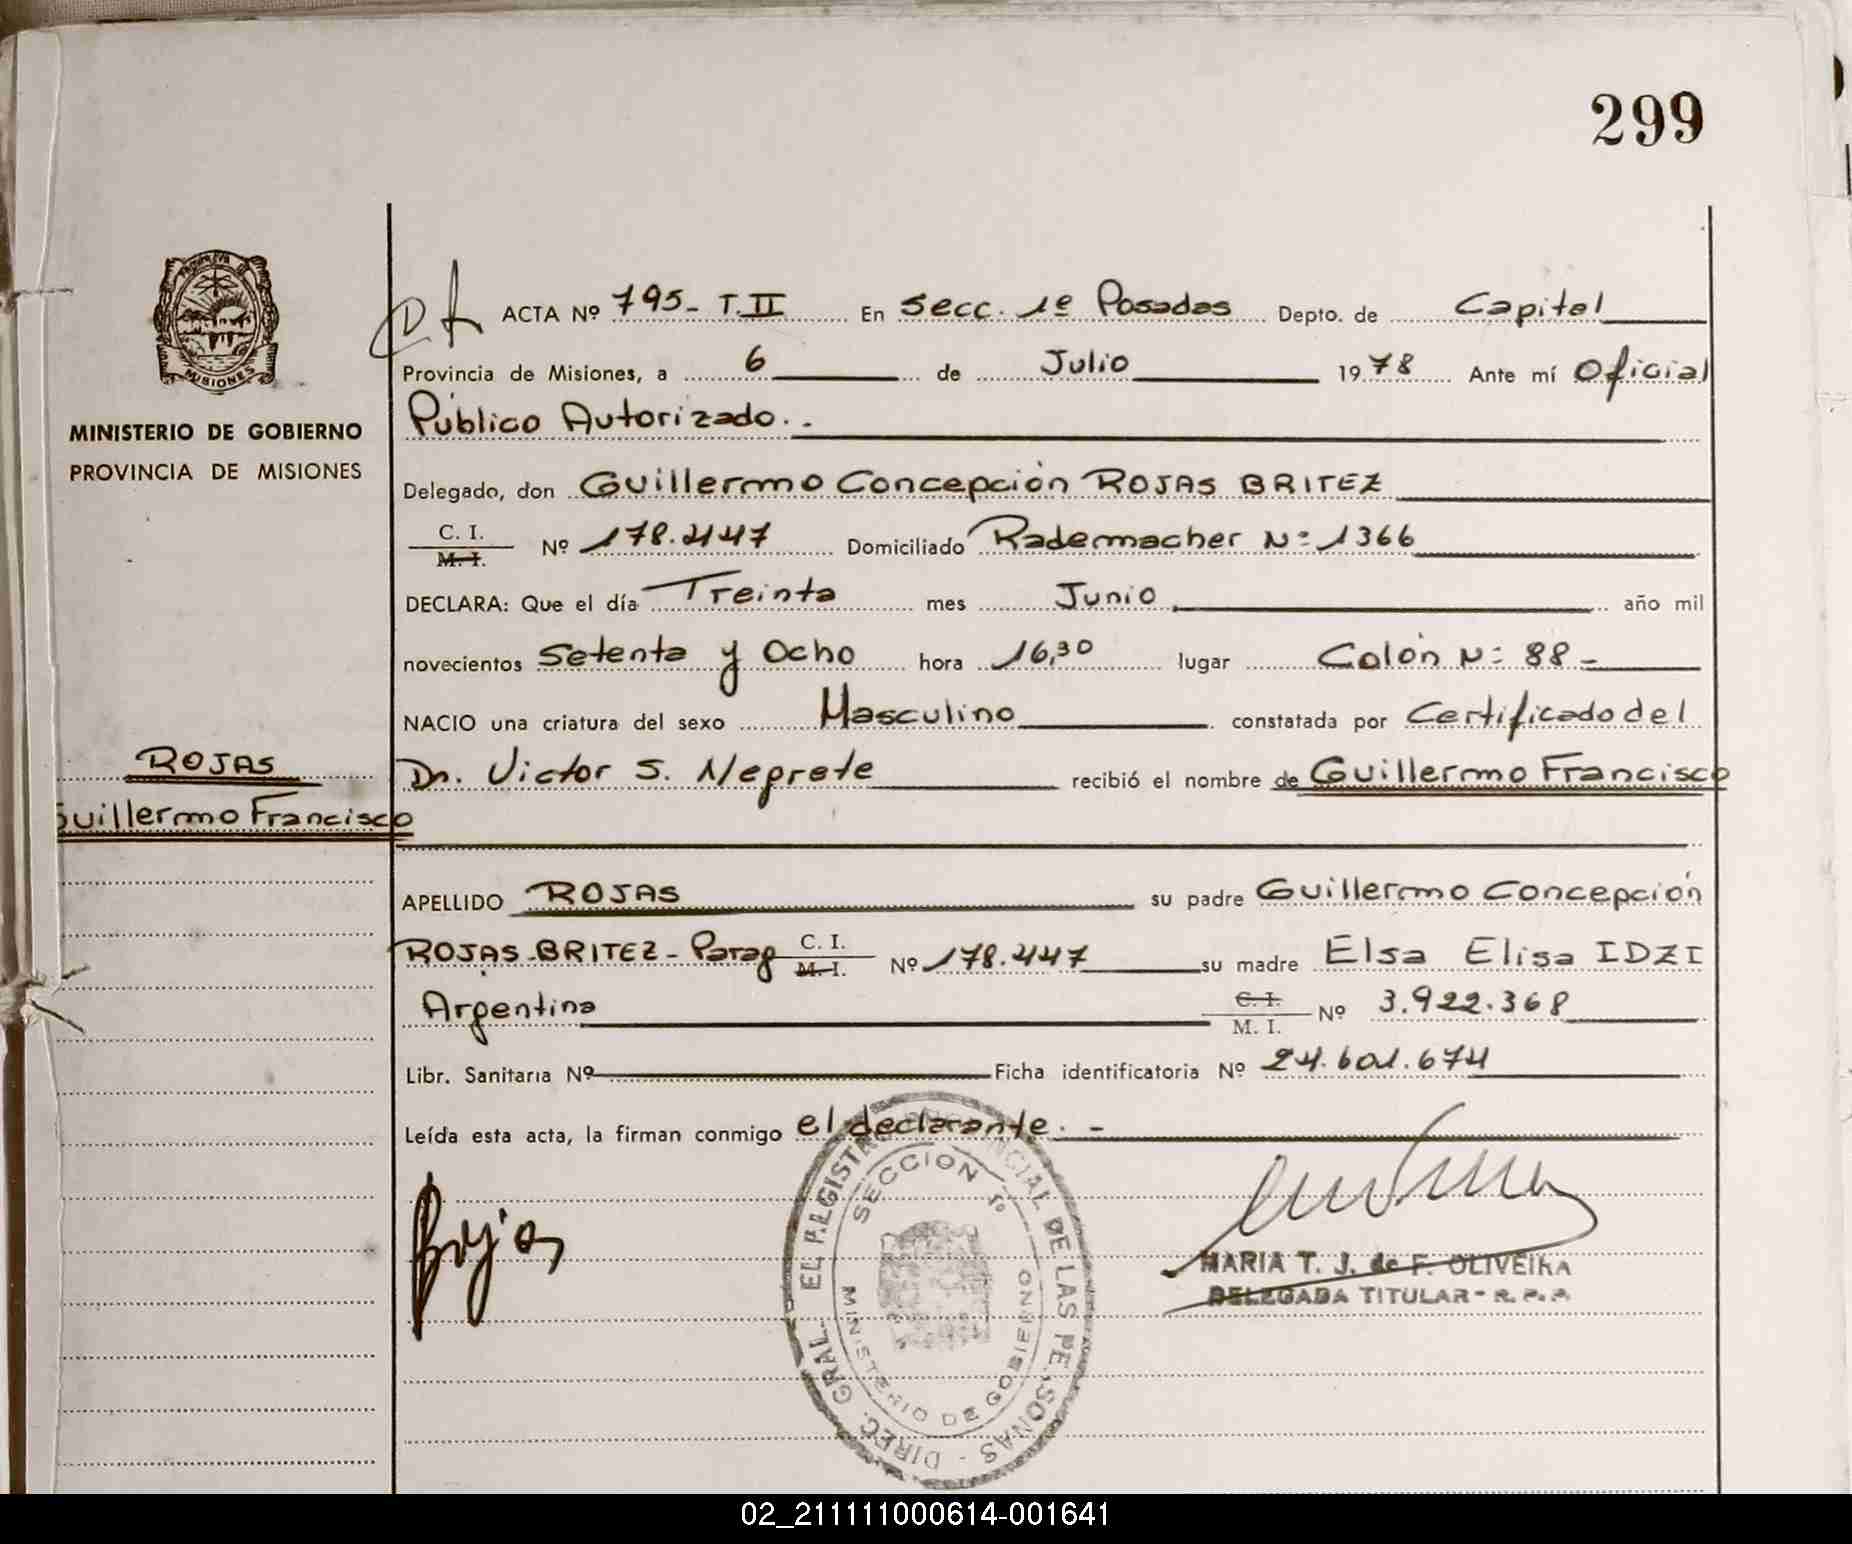 299
ACTA Nº 795- T.II En Secc. 1º Posadas Depto. de Capital
Provincia de Misiones, a 6 de Julio 1978 Ante mí Oficial
Público Autorizado.-
MINISTERIO DE GOBIERNO
PROVINCIA DE MISIONES
MISIONES
Delegado, don Guillermo Concepción ROJAS BRITEZ
C. I.
M. I. Nº 178.447 Domiciliado Rademacher Nº 1366
DECLARA: Que el día Treinta mes Junio año mil
novecientos Setenta y Ocho hora 16,30 lugar Colón Nº 88-
NACIO una criatura del sexo Masculino constatada por Certificado del
Dr. Victor S. Negrete recibió el nombre de Guillermo Francisco
ROJAS
Guillermo Francisco
APELLIDO ROJAS su padre Guillermo Concepción
ROJAS-BRITEZ- Parag C. I. M. I. Nº 178.447 su madre Elsa Elisa IDZI
Argentina C. I. M. I. Nº 3.922.368
Libr. Sanitaria Nº Ficha identificatoria Nº 24.601.674
Leída esta acta, la firman conmigo el declarante.-
Rojas
SECCION 1º
MINISTERIO DE GOBIERNO
MARIA T. J. de F. OLIVEIRA
DELEGADA TITULAR - R. P. P.
02_211111000614-001641